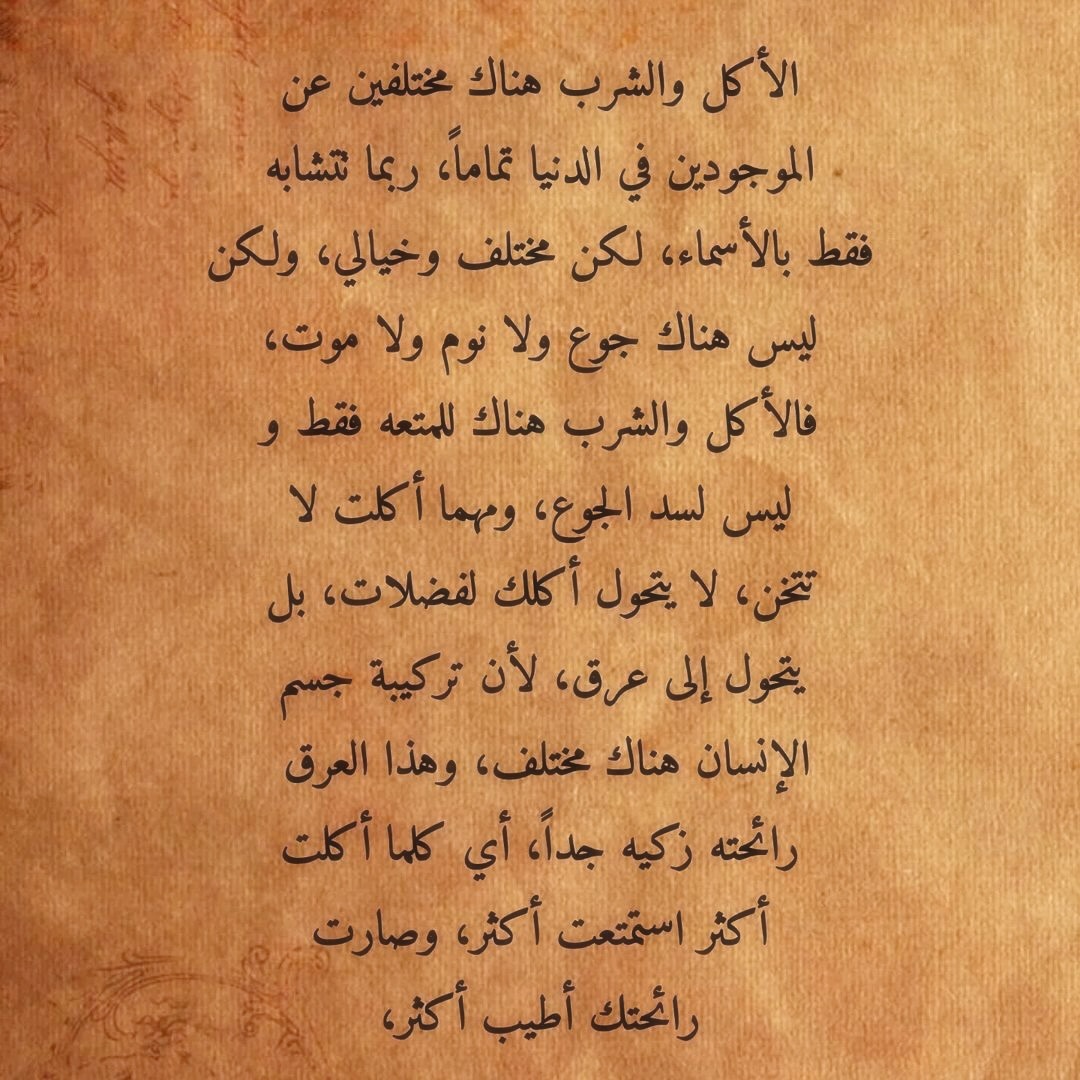 الأكل والشرب هناك مختلفين عن
الموجودين في الدنيا تماماً، ربما نتشابه
فقط بالأسماء، لكن مختلف وخيالي، ولكن
ليس هناك جوع ولا نوم ولا موت،
فالأكل والشرب هناك للمتعه فقط و
ليس لسد الجوع، ومهما أكلت لا
تتخن، لا يتحول أكلك لفضلات، بل
يتحول إلى عرق، لأن تركيبة جسم
الإنسان هناك مختلف، وهذا العرق
رائحته زكيه جداً، أي كلما أكلت
أكثر استمتعت أكثر، وصارت
رائحتك أطيب أكثر،